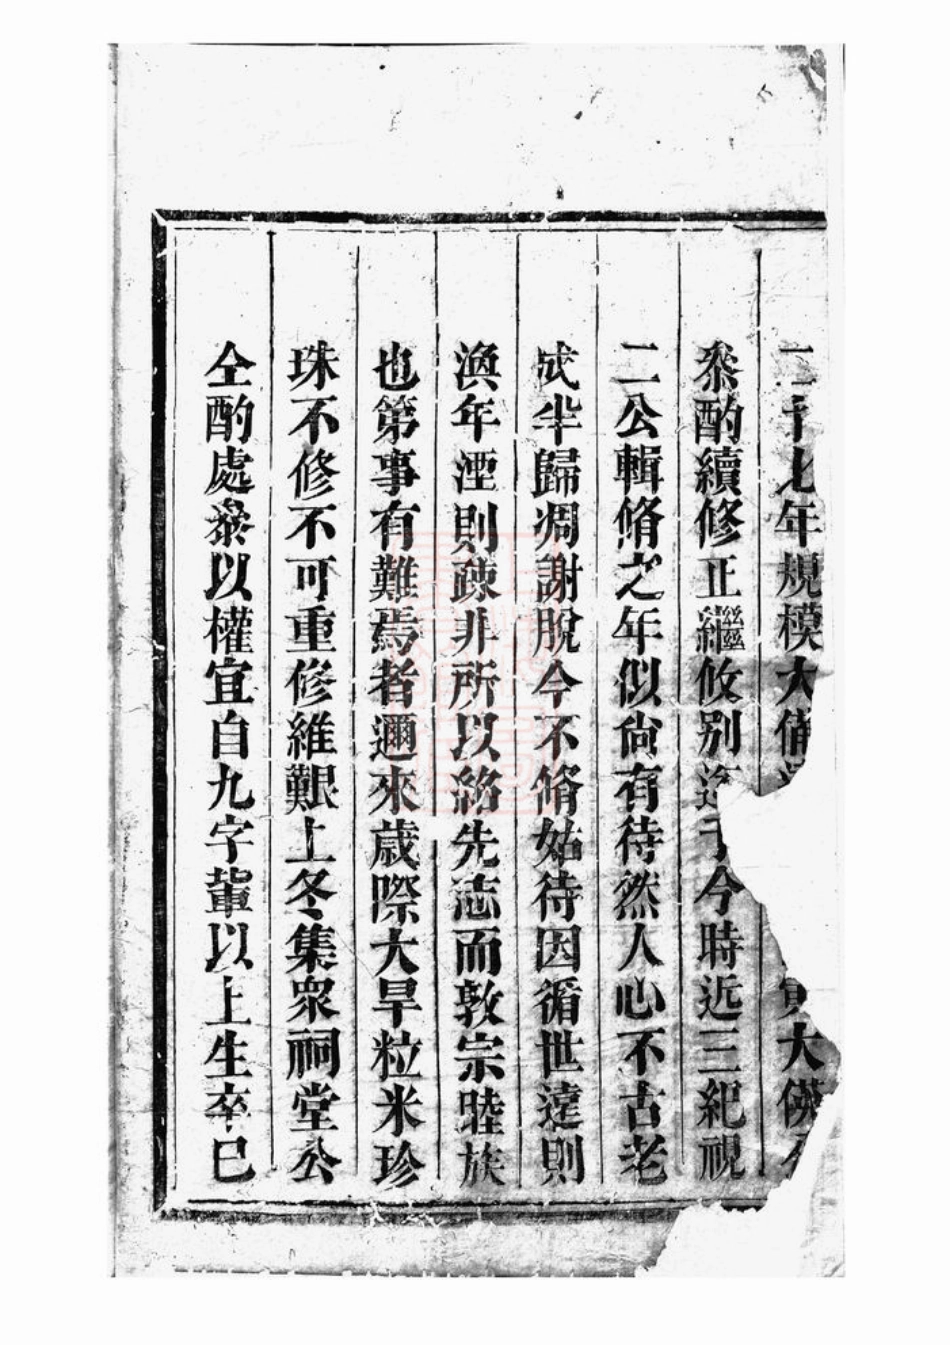 二十七年規模大備寅大儀
叅酌續修正繼攸别迄于今時近三紀視
二公輯脩之年似尙有待然人心不古老
成半歸凋謝脫今不脩姑待因循世遠則
渙年湮則疎非所以紹先志而敦宗睦族
也第事有難焉者邇來歲際大旱粒米珍
珠不修不可重修維艱上冬集衆祠堂公
仝酌處叅以權宜自九字輩以上生卒已